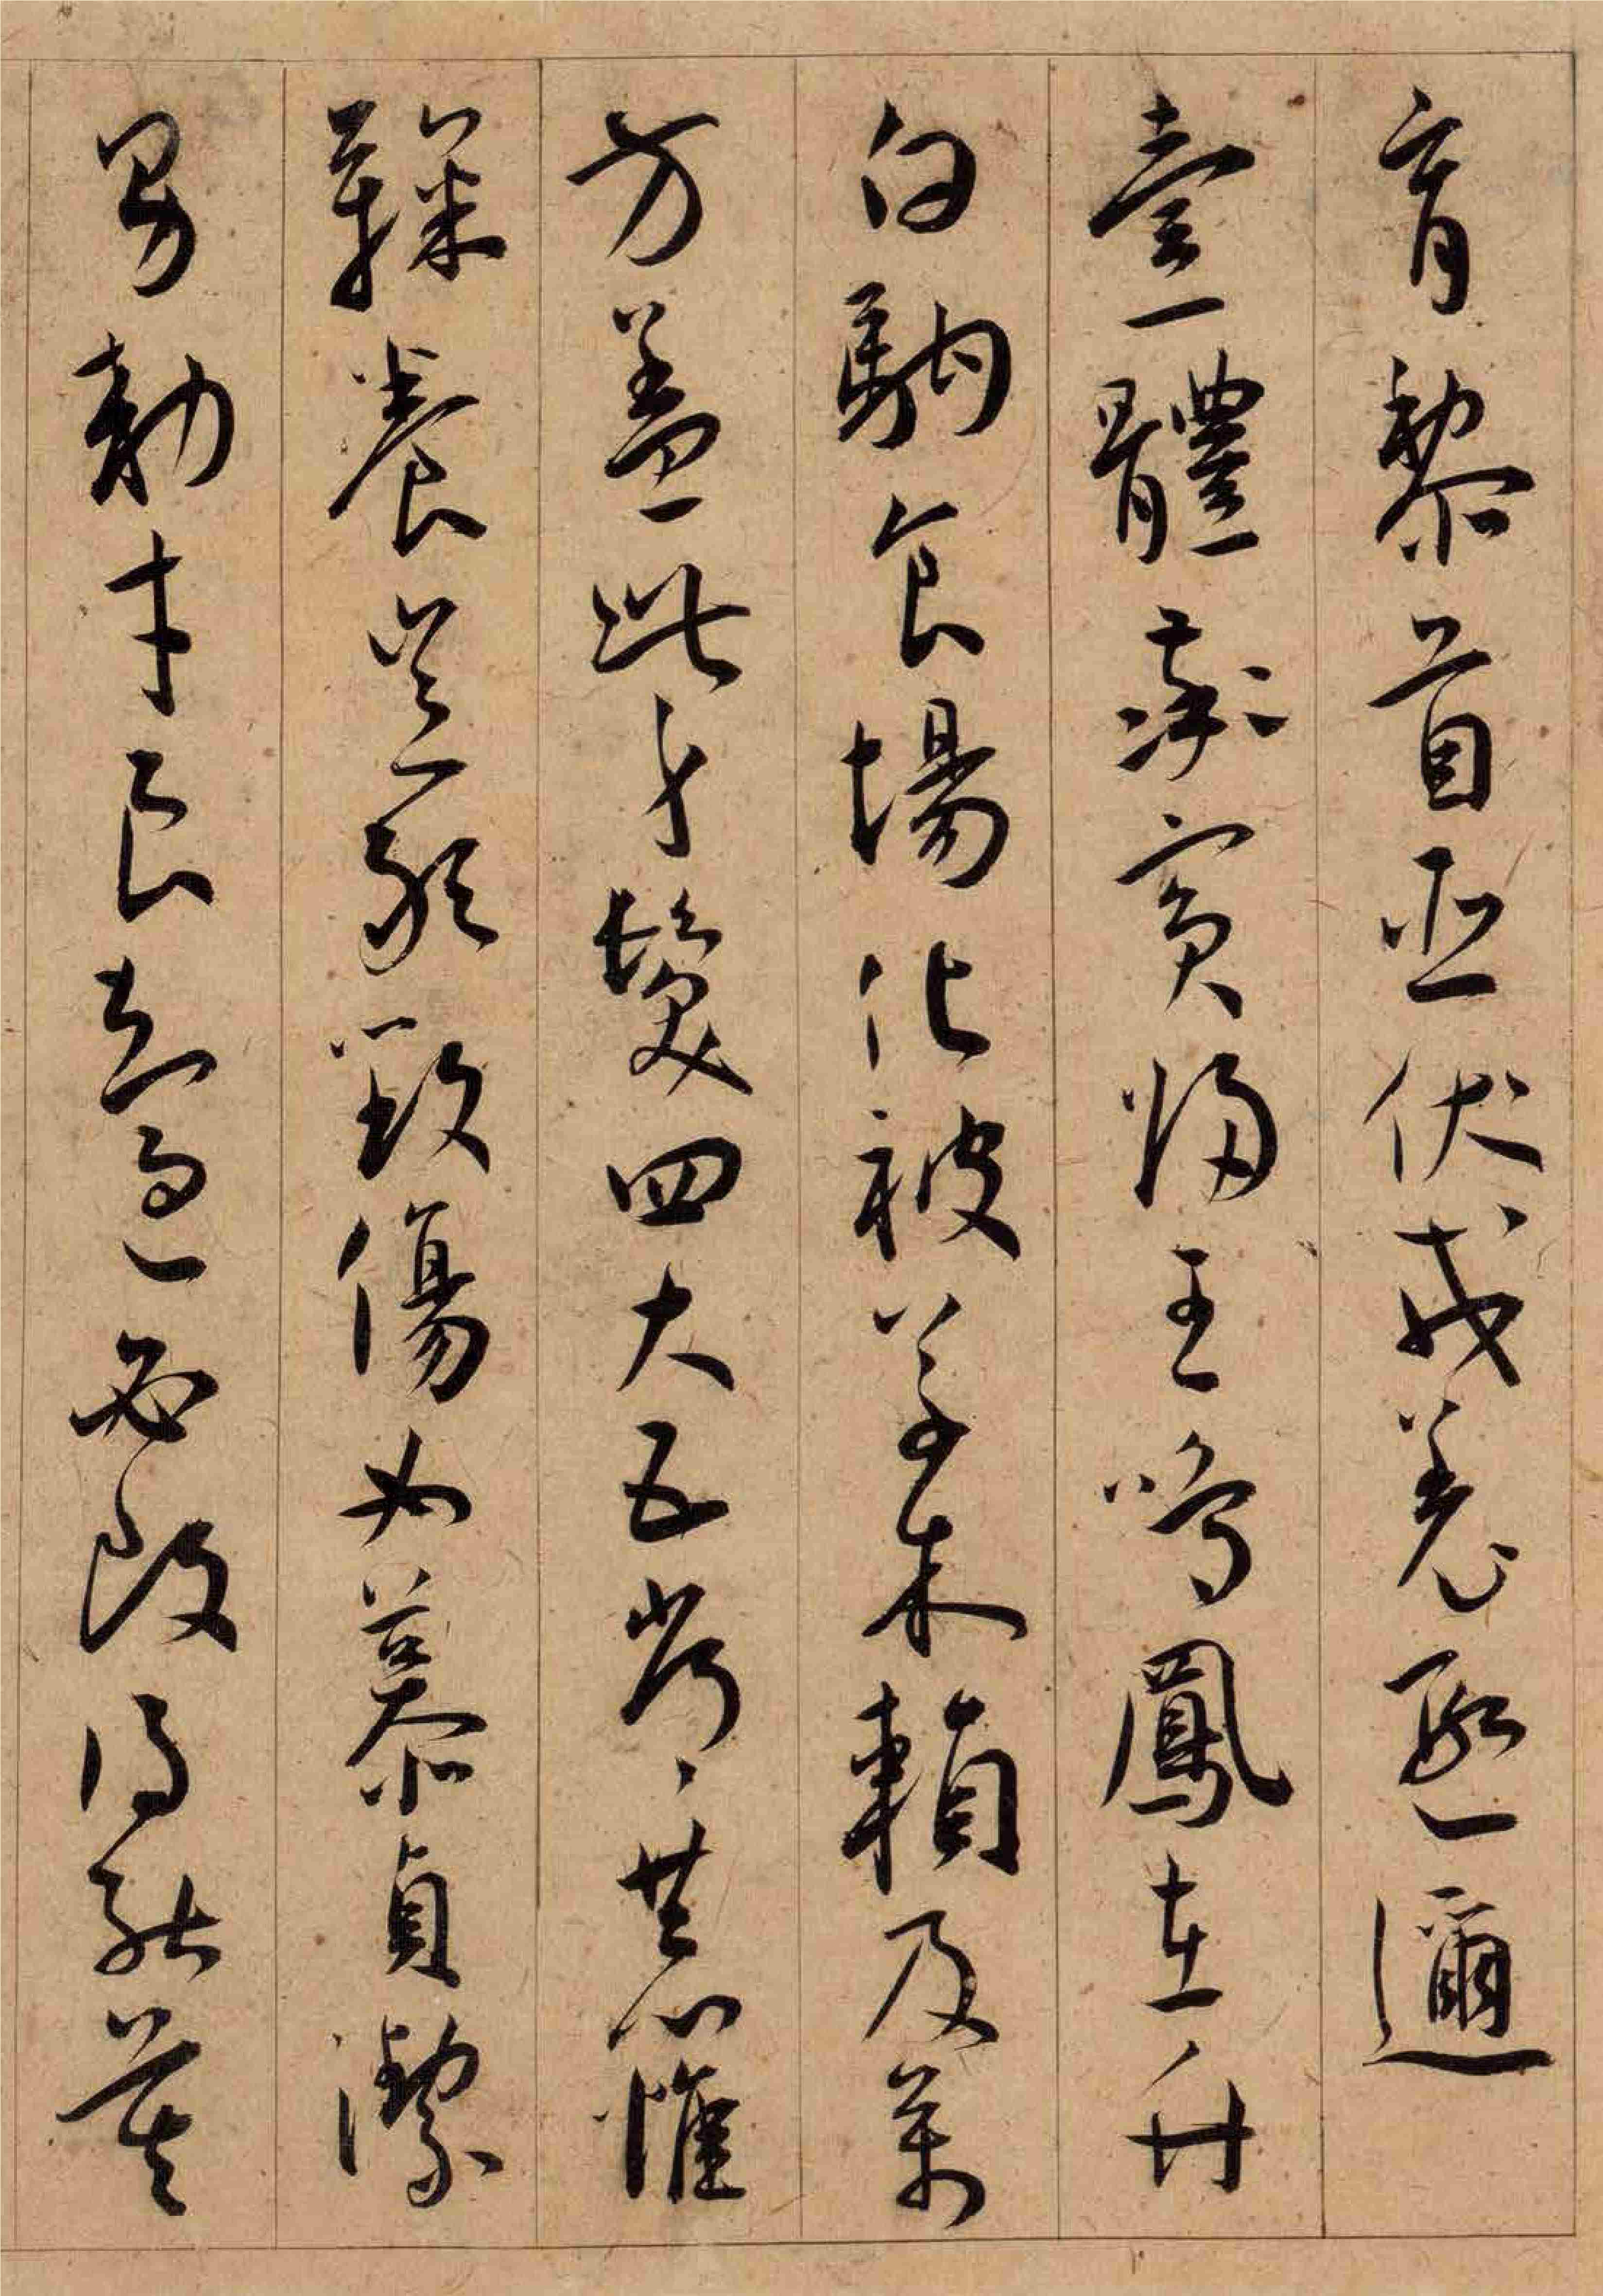 育黎首臣伏戎羌遐邇
壹體率賓歸王鳴鳳在竹
白駒食場化被草木賴及萬
方蓋此身髮四大五常恭惟
鞠養豈敢毀傷女慕貞潔
男効才良知過必改得能莫